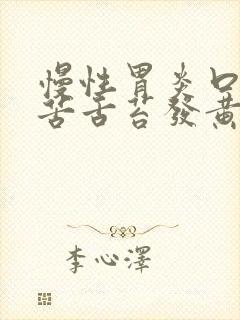 慢性胃炎口
苦舌苔發黃
李心澤